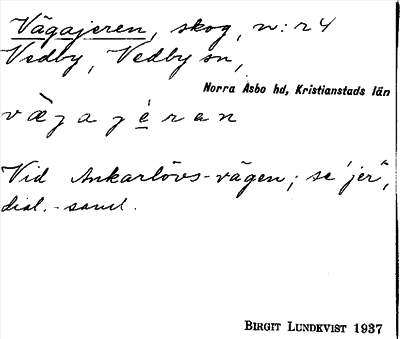 Vägajeren, skog, n:r 4
Vedby, Vedby sn,
Norra Åsbo hd, Kristianstads län
v æ g a j é r a n
Vid Ankarlövs-vägen; se "jer",
dial.-saml.
BIRGIT LUNDKVIST 1937